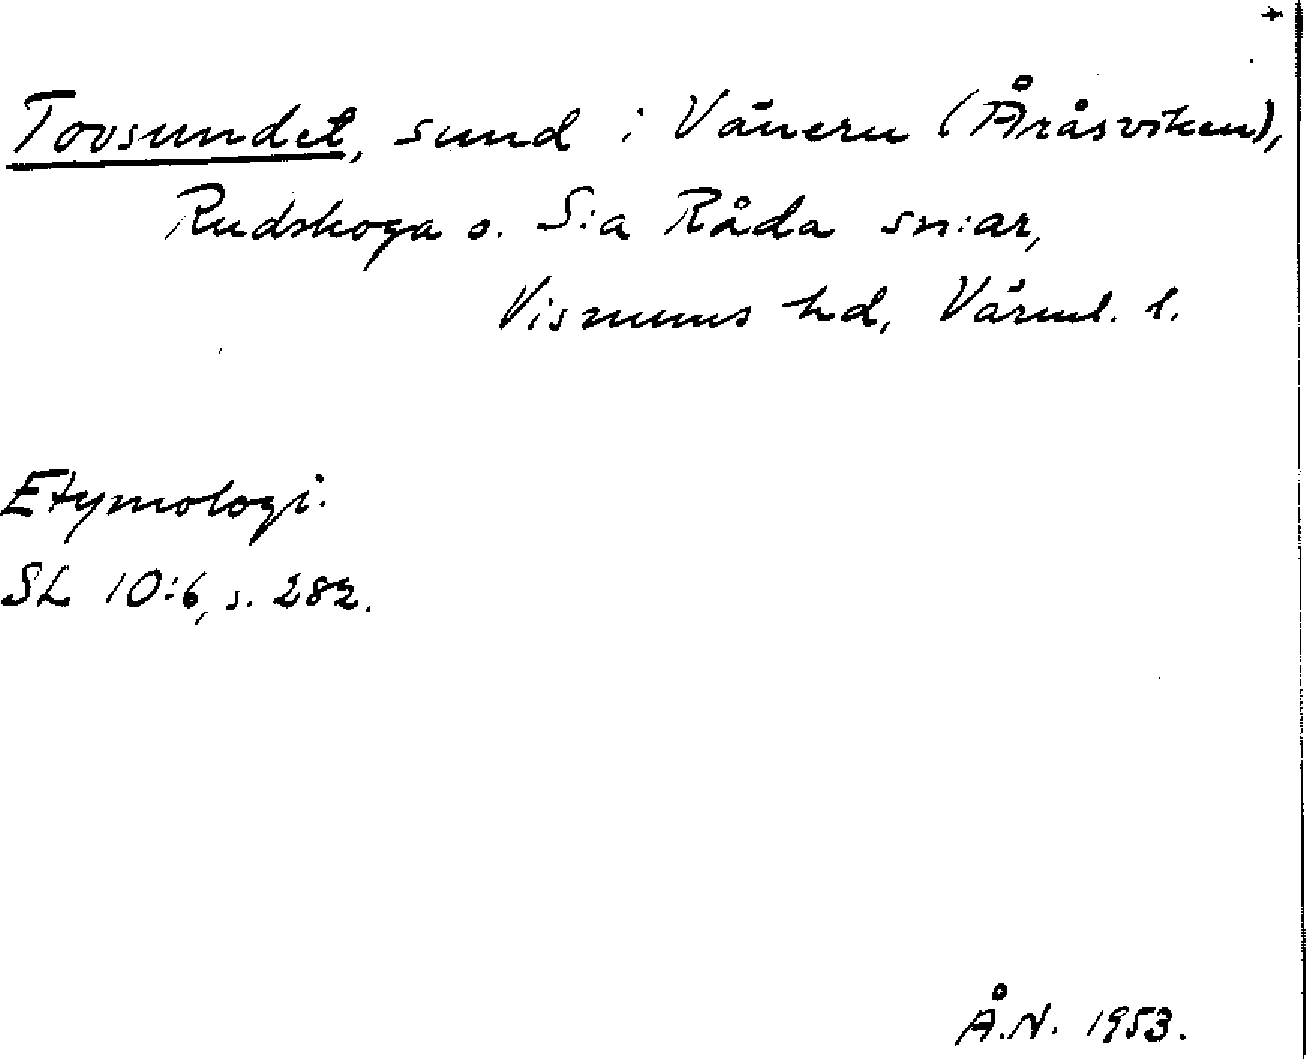 Tovsundet, sund i Vänern (Åråsviken),
Rudskoga o. S:a Råda sn:ar,
Visnums hd, Värml. l.
Etymologi.
SL 10:6, s. 282.
Å.N. 1953.